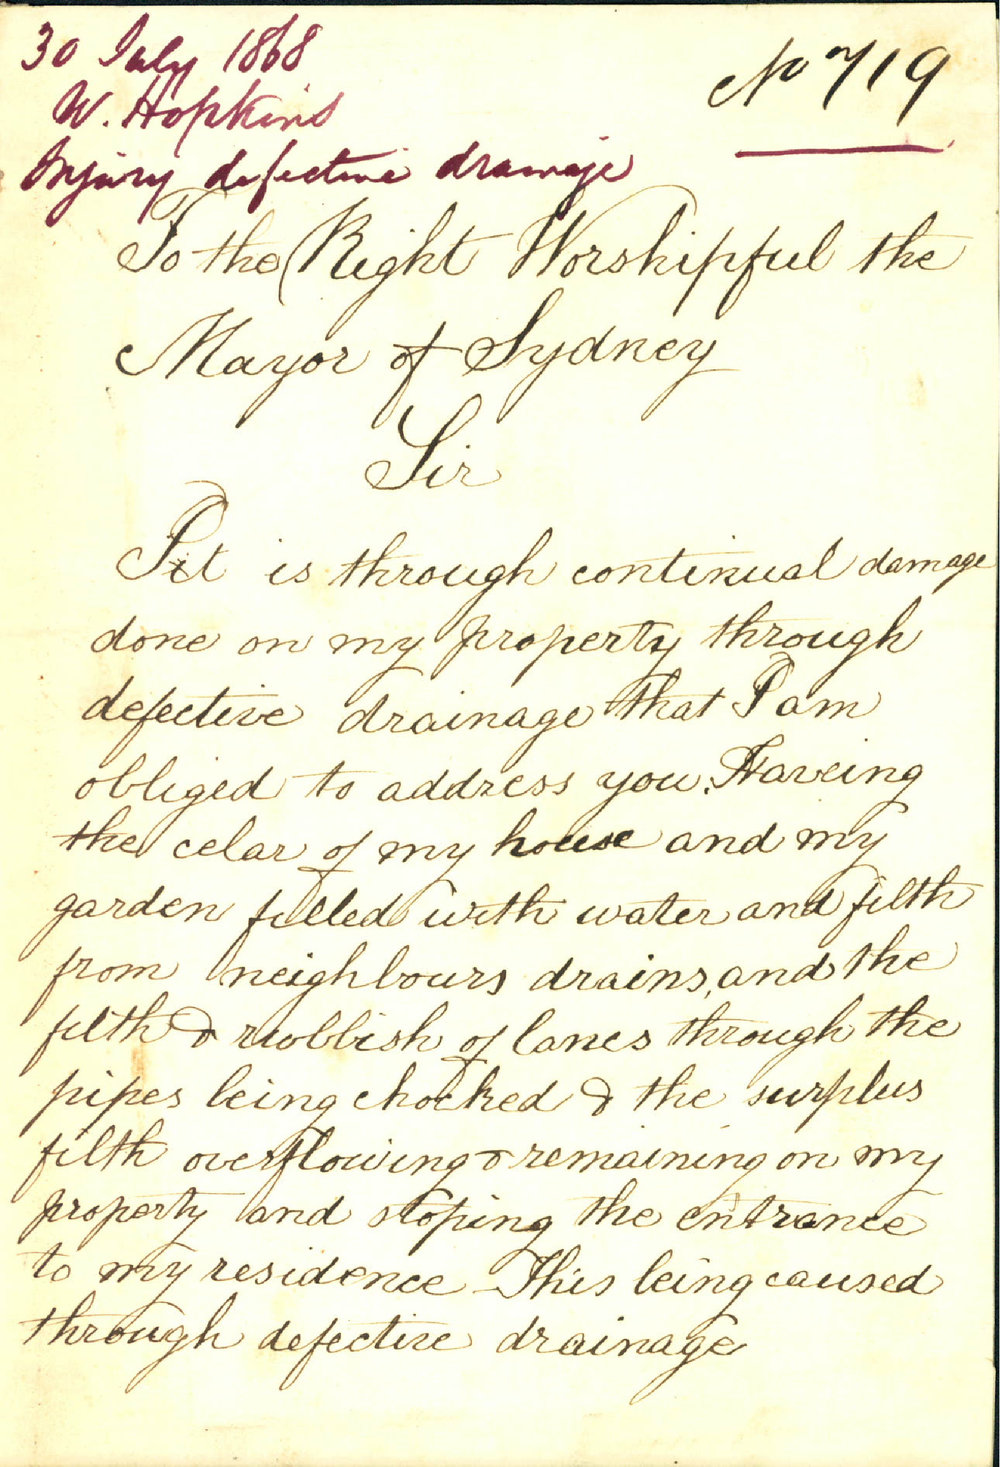 30 July 1868
No 719
W. Hopkins
Injury defective drainage
To the Right Worshipful the
Mayor of Sydney
Sir
It is through continual damage
done on my property through
defective drainage that I am
obliged to address you. Haveing
the celar of my house and my
garden filled with water and filth
from neighbours drains, and the
filth & rubbish of lanes through the
pipes being chocked & the surplus
filth overflowing & remaining on my
property and stoping the entrance
to my residence This being caused
through defective drainage